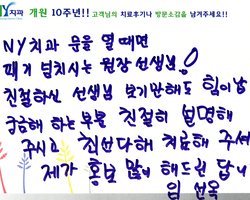 NY치과 개원 10주년!! 고객님의 치료후기나 방문소감을 남겨주세요!!
NY치과 문을 열때면
패기 넘치시는 원장 선생님!
친절하신 선생님 보기만해도 힘이남
궁금해 하는 부분 친절히 설명해
주시고 최선다해 치료해 주셔
제가 홍보 많이 해드린 답니
임 선옥